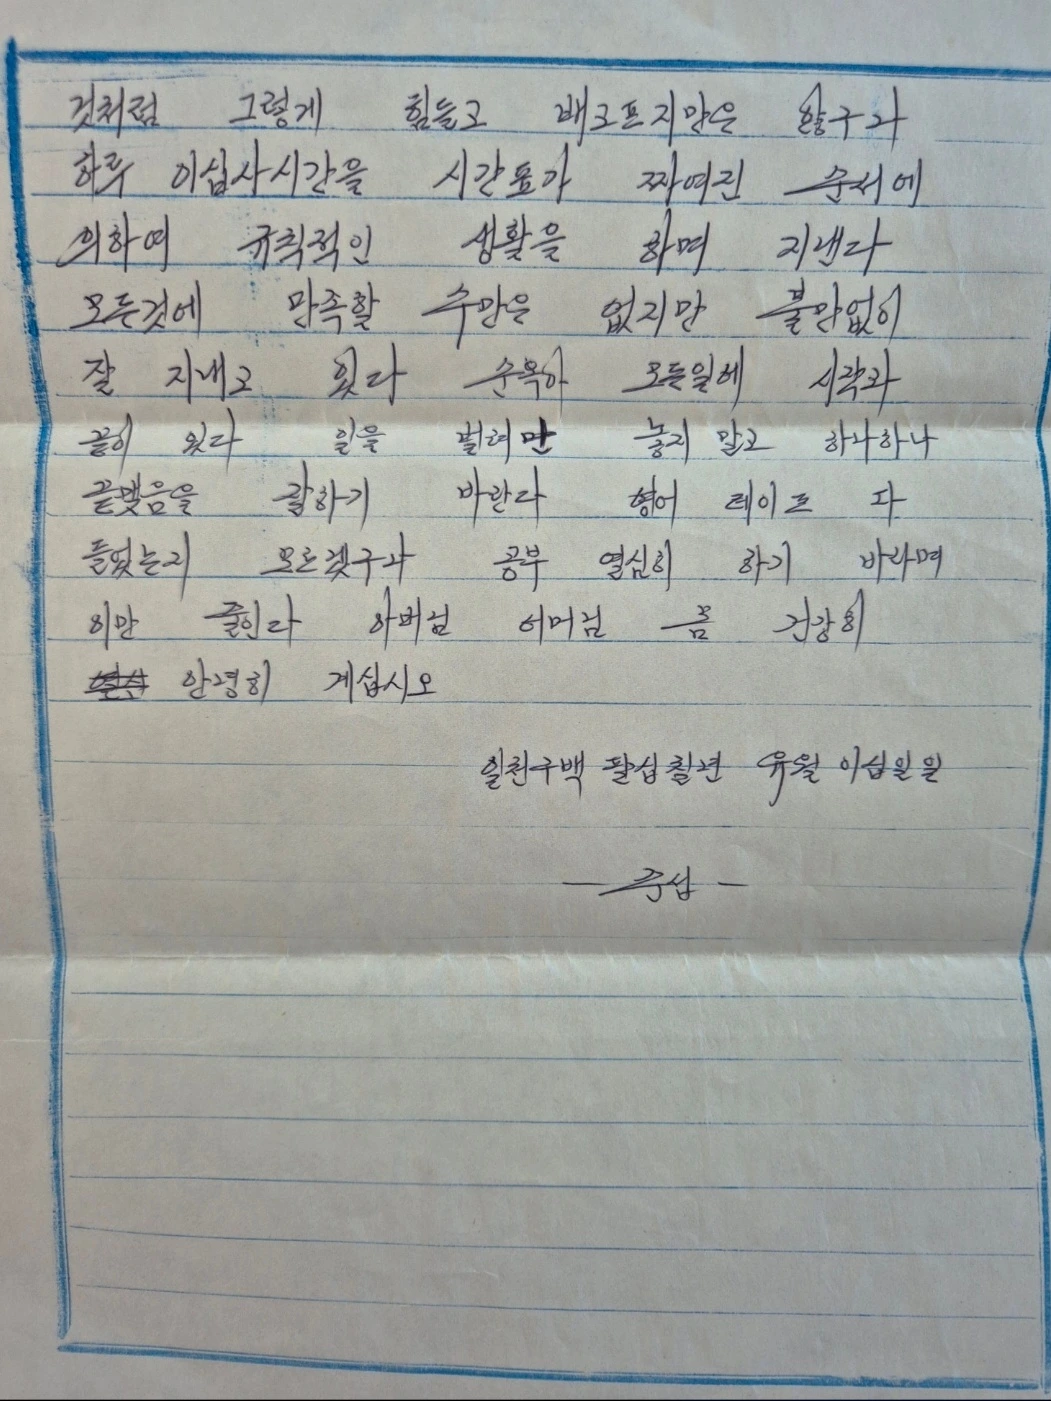 것처럼 그렇게 힘들고 배고프지만은 않구나
하루 이십사시간을 시간표가 짜여진 순서에
의하여 규칙적인 생활을 하며 지낸다
모든것에 만족할 수만은 없지만 불만없이
잘 지내고 있다 순옥아 모든일에 시작과
끝이 있다 일을 벌려만 놓지 말고 하나하나
끝맺음을 잘하기 바란다 영어 테이프 다
들었는지 모르겠구나 공부 열심히 하기 바라며
이만 줄인다 아버님 어머님 몸 건강히
안녕히 계십시오
일천구백 팔십칠년 유월 이십일일